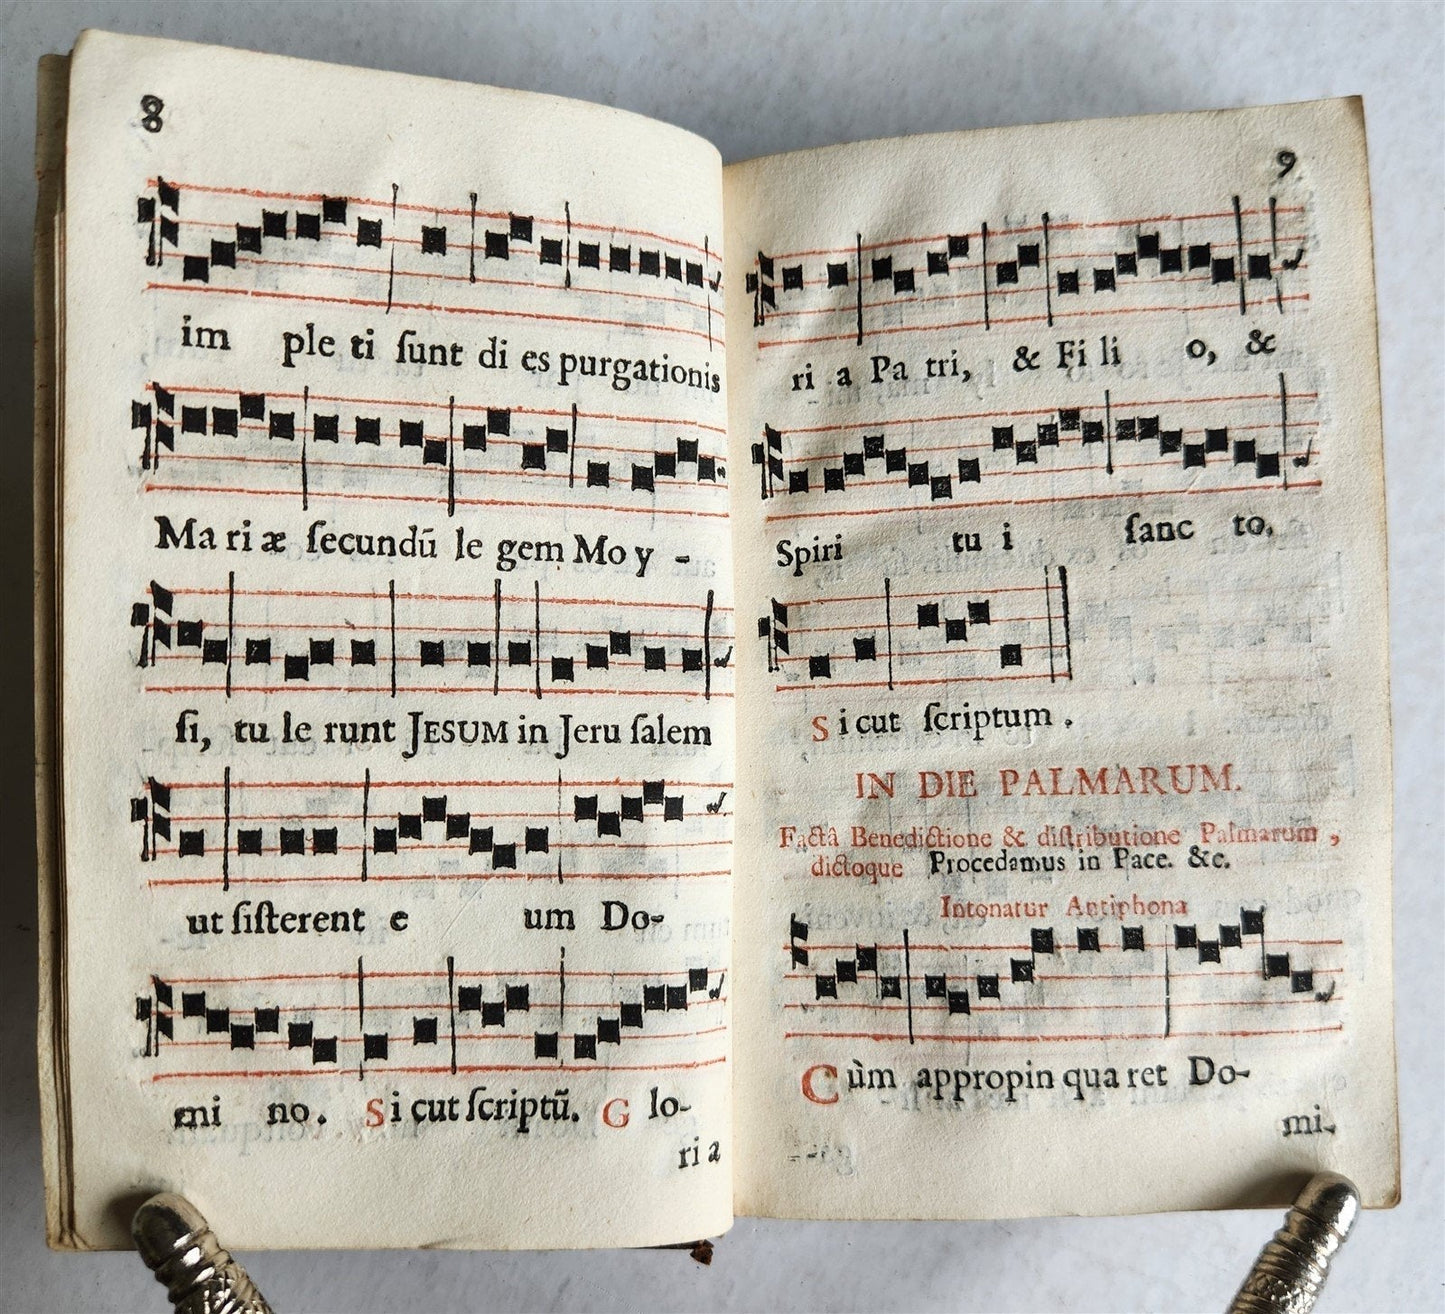 8
im ple ti ſunt di es purgationis
Ma ri æ ſecundū le gem Mo y -
ſi, tu le runt JESUM in Jeru ſalem
ut ſiſterent e um Do-
mi no. Si cut ſcriptū. G lo-
ri a
9
ri a Pa tri, & Fi li o, &
Spiri tu i ſanc to.
Si cut ſcriptum.
IN DIE PALMARUM.
Factâ Benedictione & diſtributione Palmarum,
dictoque Procedamus in Pace. &c.
Intonatur Antiphona
Cùm appropin qua ret Do-
mi-